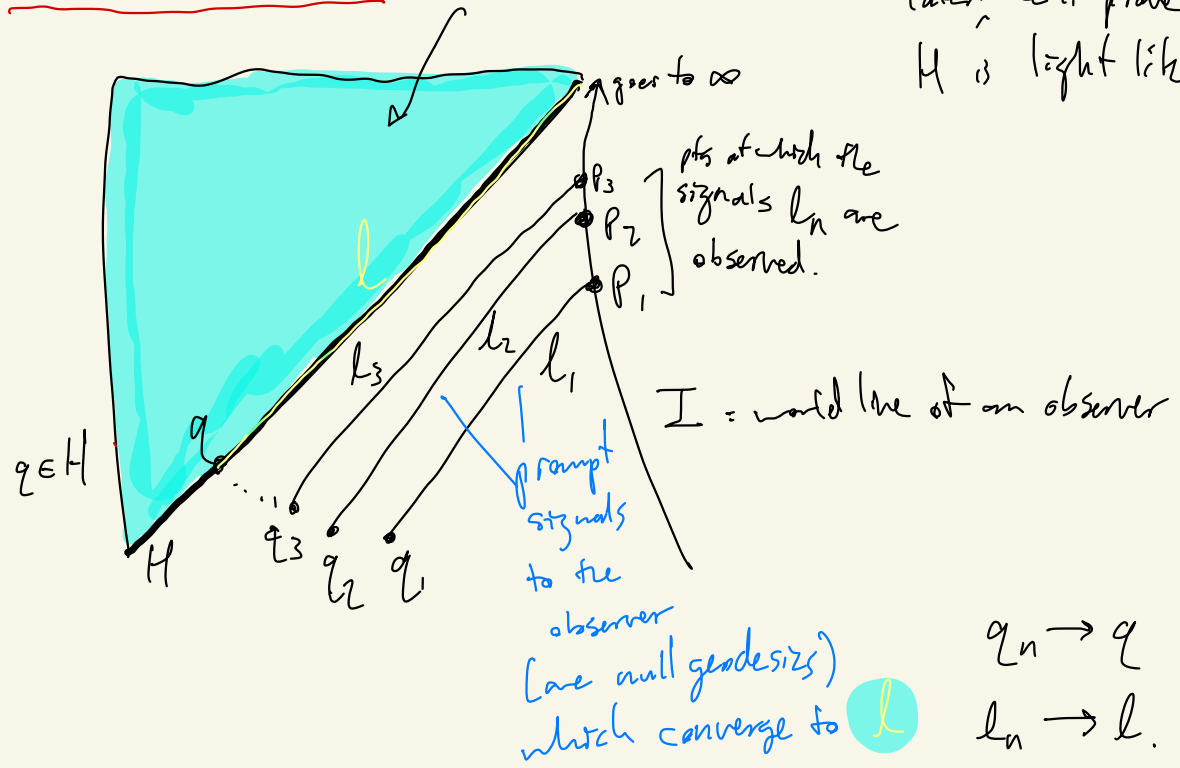 H is light lik
goes to ∞
pts at which the
signals lₙ are
observed.
P₃
P₂
P₁
l
l₃
l₂
l₁
I = world line of an observer
q
q ∈ H
H
q₃
q₂
q₁
prompt
signals
to the
observer
(are null geodesizs)
which converge to l
qₙ → q
lₙ → l.